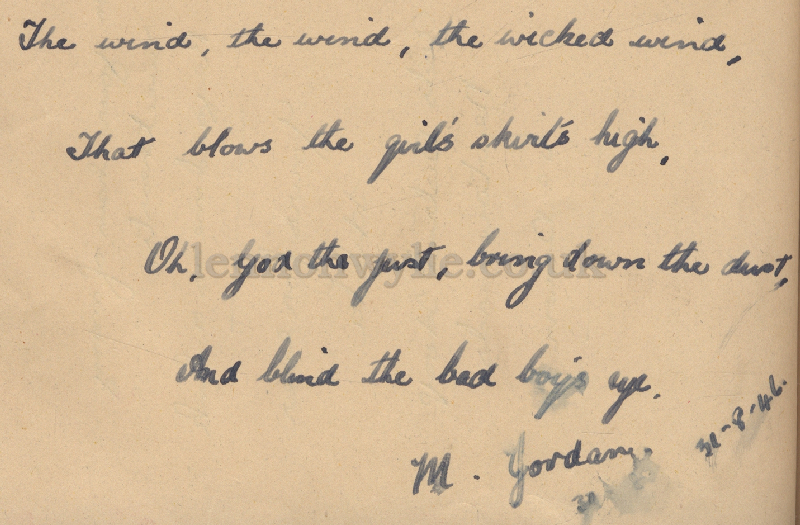 The wind, the wind, the wicked wind,
That blows the girl's skirt's high,
Oh, God the just, bring down the dust,
And blind the bad boy's eye.
M. Jordan.
31-8-46.
lennonwylie.co.uk